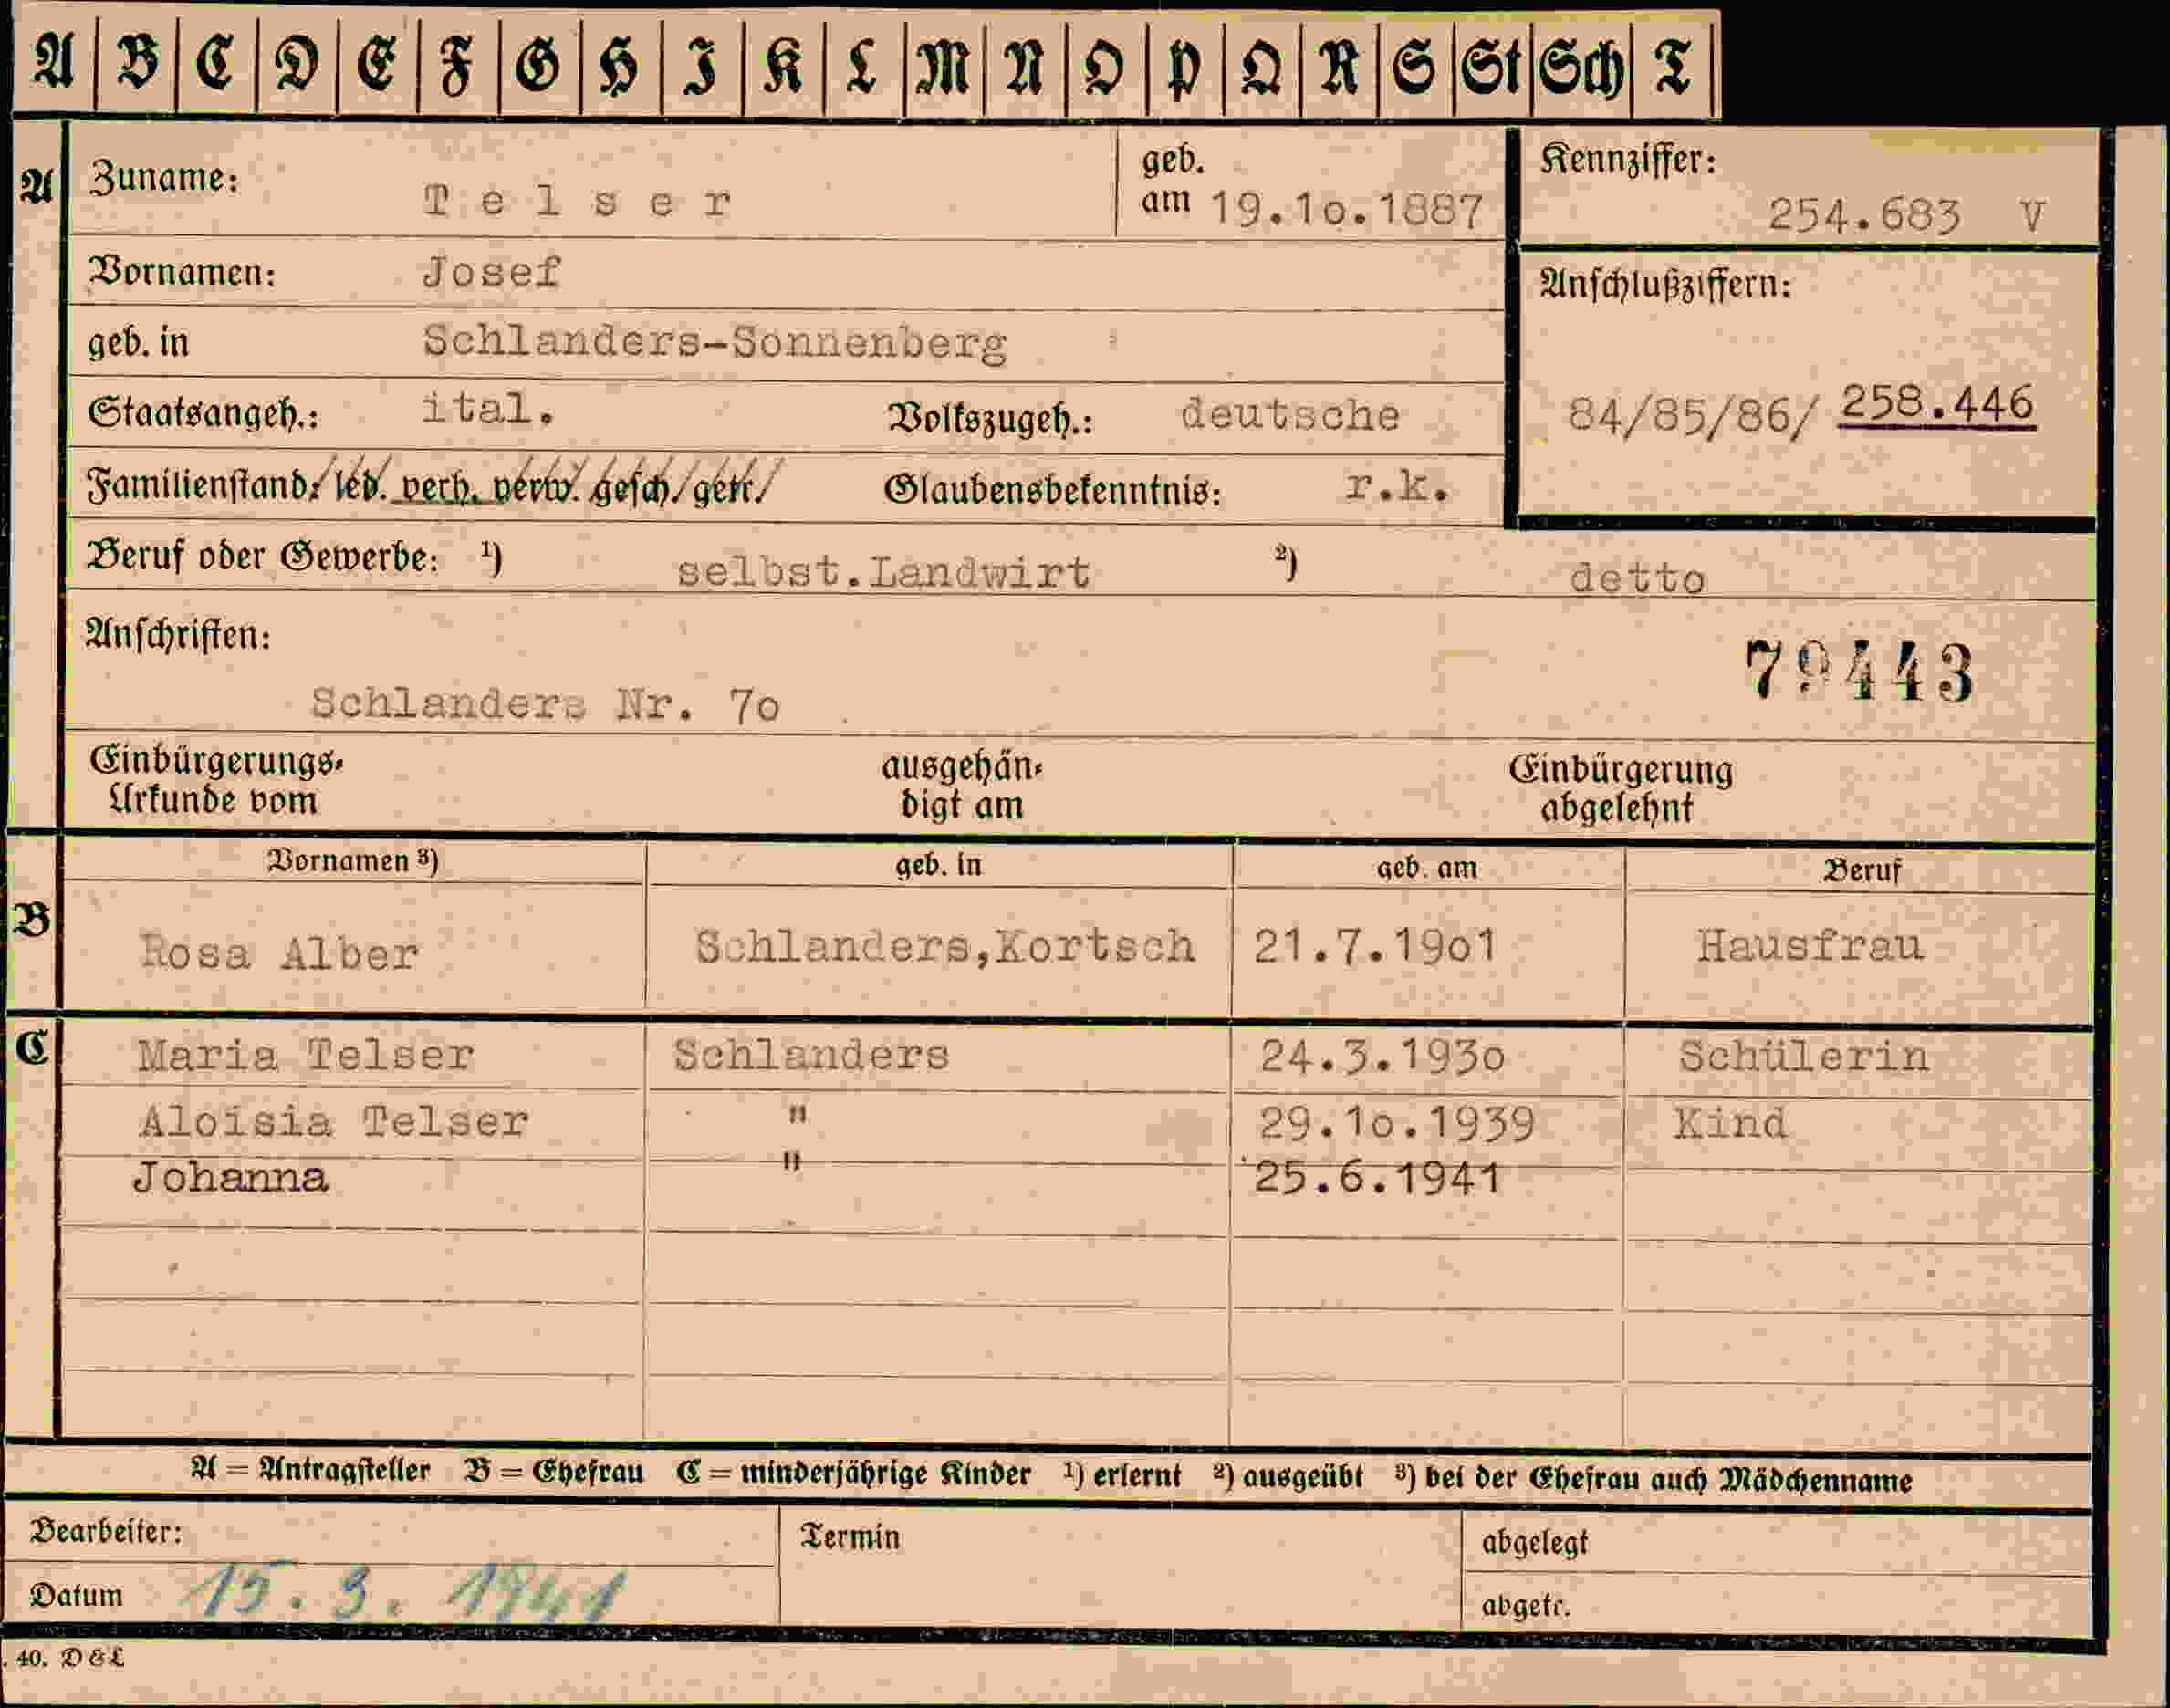 A B C D E F G H I K L M N O P Q R S St Sch T
A Zuname: Telser geb. am 19.1o.1887 Kennziffer: 254.683 V
Vornamen: Josef Anschlußziffern:
geb. in Schlanders-Sonnenberg
Staatsangeh.: ital. Volkszugeh.: deutsche 84/85/86/ 258.446
Familienstand: led. verh. verw. gesch. getr. Glaubensbekenntnis: r.k.
Beruf oder Gewerbe: ¹) selbst.Landwirt ²) detto
Anschriften: 79443
Schlanders Nr. 7o
Einbürgerungs- ausgehän- Einbürgerung
Urkunde vom digt am abgelehnt
Vornamen ³) geb. in geb. am Beruf
B Rosa Alber Schlanders,Kortsch 21.7.19o1 Hausfrau
C Maria Telser Schlanders 24.3.193o Schülerin
Aloisia Telser " 29.1o.1939 Kind
Johanna " 25.6.1941
A = Antragsteller B = Ehefrau C = minderjährige Kinder ¹) erlernt ²) ausgeübt ³) bei der Ehefrau auch Mädchenname
Bearbeiter: Termin abgelegt
Datum 15. 3. 1941 abgetr.
. 40. D & L